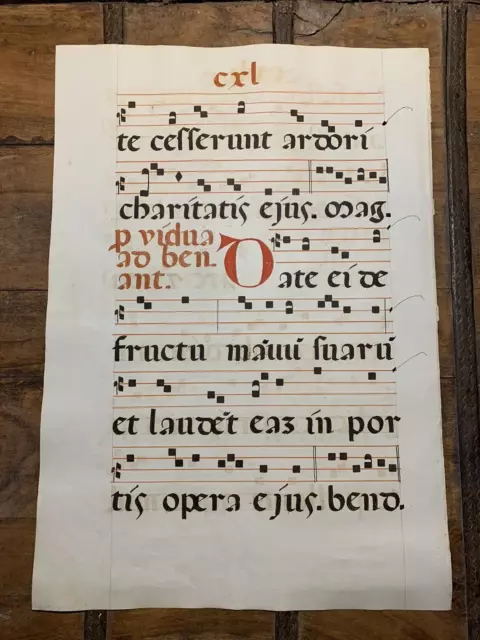 cxl
te cesserunt ardori
charitatis ejus. Mag.
p vidua
ad ben.
ant.
Date ei de
fructu manuū suarū
et laudēt eaꝫ in por
tis opera ejus. bend.